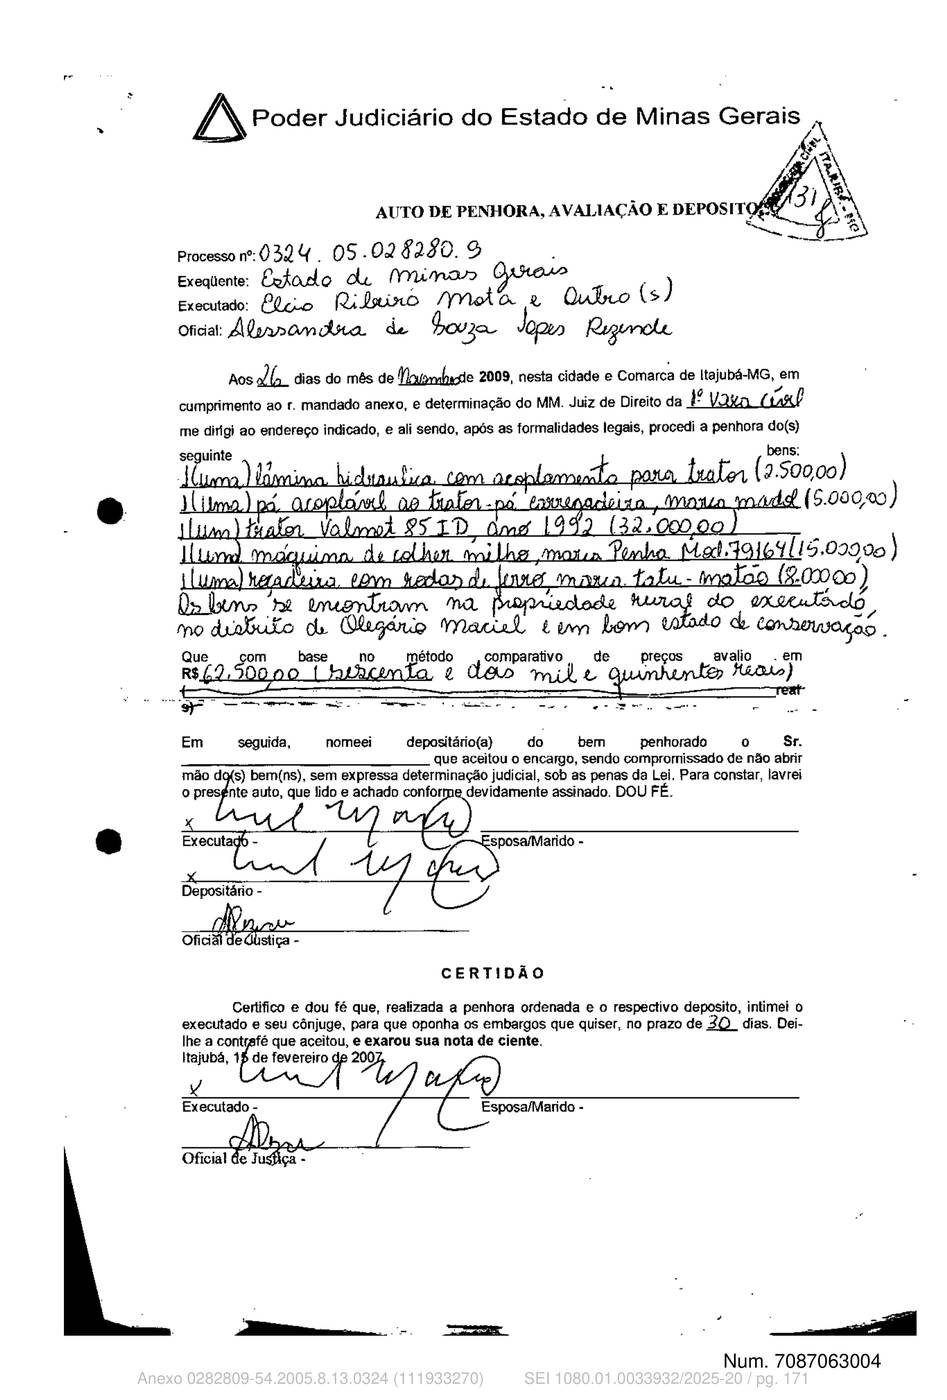 Poder Judiciário do Estado de Minas Gerais
ITAJUBÁ - MG
131
AUTO DE PENHORA, AVALIAÇÃO E DEPOSITO
Processo nº: 0324.05.028280.9
Exeqüente: Estado de Minas Gerais
Executado: Elcio Ribeiro Mota e Outro(s)
Oficial: Alessandra de Souza Lopes Rezende
Aos 26 dias do mês de Novembro de 2009, nesta cidade e Comarca de Itajubá-MG, em
cumprimento ao r. mandado anexo, e determinação do MM. Juiz de Direito da 1º Vara Cível
me dirigi ao endereço indicado, e ali sendo, após as formalidades legais, procedi a penhora do(s)
seguinte bens:
1(uma) lâmina hidraulica com acoplamento para trator (2.500,00)
1(uma) pá acoplável ao trator-pá carregadeira, marca madal (5.000,00)
1(um) trator Valmet 85 ID, ano 1992 (32.000,00)
1(uma) máquina de colher milho, marca Penha Mod. 79164 (15.000,00)
1(uma) roçadeira com rodas de ferro, marca tatu-matão (8.000,00)
Os bens se encontram na propriedade rural do executado,
no distrito de Olegário Maciel e em bom estado de conservação.
Que com base no método comparativo de preços avalio em
R$ 62.500,00 (sescenta e dois mil e quinhentos reais)
( reai
s)
Em seguida, nomeei depositário(a) do bem penhorado o Sr.
que aceitou o encargo, sendo compromissado de não abrir
mão do(s) bem(ns), sem expressa determinação judicial, sob as penas da Lei. Para constar, lavrei
o presente auto, que lido e achado conforme devidamente assinado. DOU FÉ.
x
Executado - Esposa/Marido -
x
Depositário -
Oficial de Justiça -
CERTIDÃO
Certifico e dou fé que, realizada a penhora ordenada e o respectivo deposito, intimei o
executado e seu cônjuge, para que oponha os embargos que quiser, no prazo de 30 dias. Dei-
lhe a contrafé que aceitou, e exarou sua nota de ciente.
Itajubá, 15 de fevereiro de 2007
x
Executado - Esposa/Marido -
Oficial de Justiça -
Num. 7087063004
Anexo 0282809-54.2005.8.13.0324 (111933270) SEI 1080.01.0033932/2025-20 / pg. 171